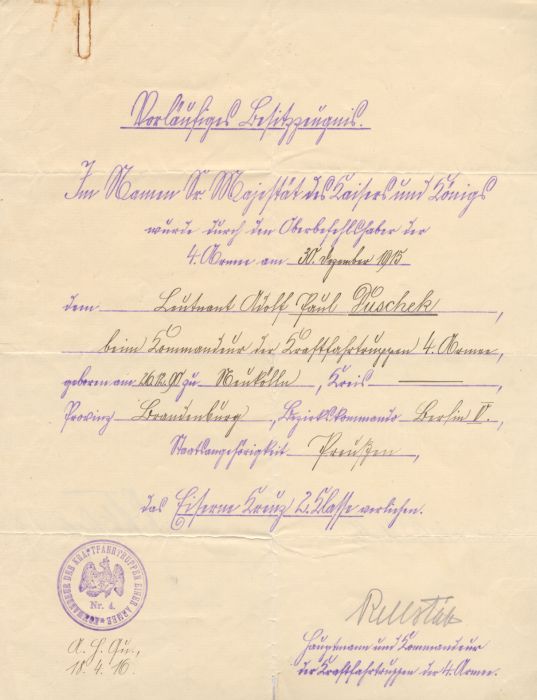 Vorläufiges Besitzzeugnis.
Im Namen Sr. Majestät des Kaisers und Königs
wurde durch den Oberbefehlshaber der
4. Armee am 30. Dezember 1915
dem Leutnant Adolf Paul Duschek,
beim Kommandeur der Kraftfahrtruppen 4. Armee,
geboren am zu Neukölln, Kreis ———,
Provinz Brandenburg, Bezirkskommando Berlin
Staatsangehörigkeit Preußen,
das Eiserne Kreuz 2. Klasse verliehen.
KOMMANDEUR DER KRAFTFAHRTRUPPEN EINER ARMEE
Nr. 4.
A. H. Qu.,
18. 4. 16.
Rellstab
Hauptmann und Kommandeur
der Kraftfahrtruppen der 4. Armee.